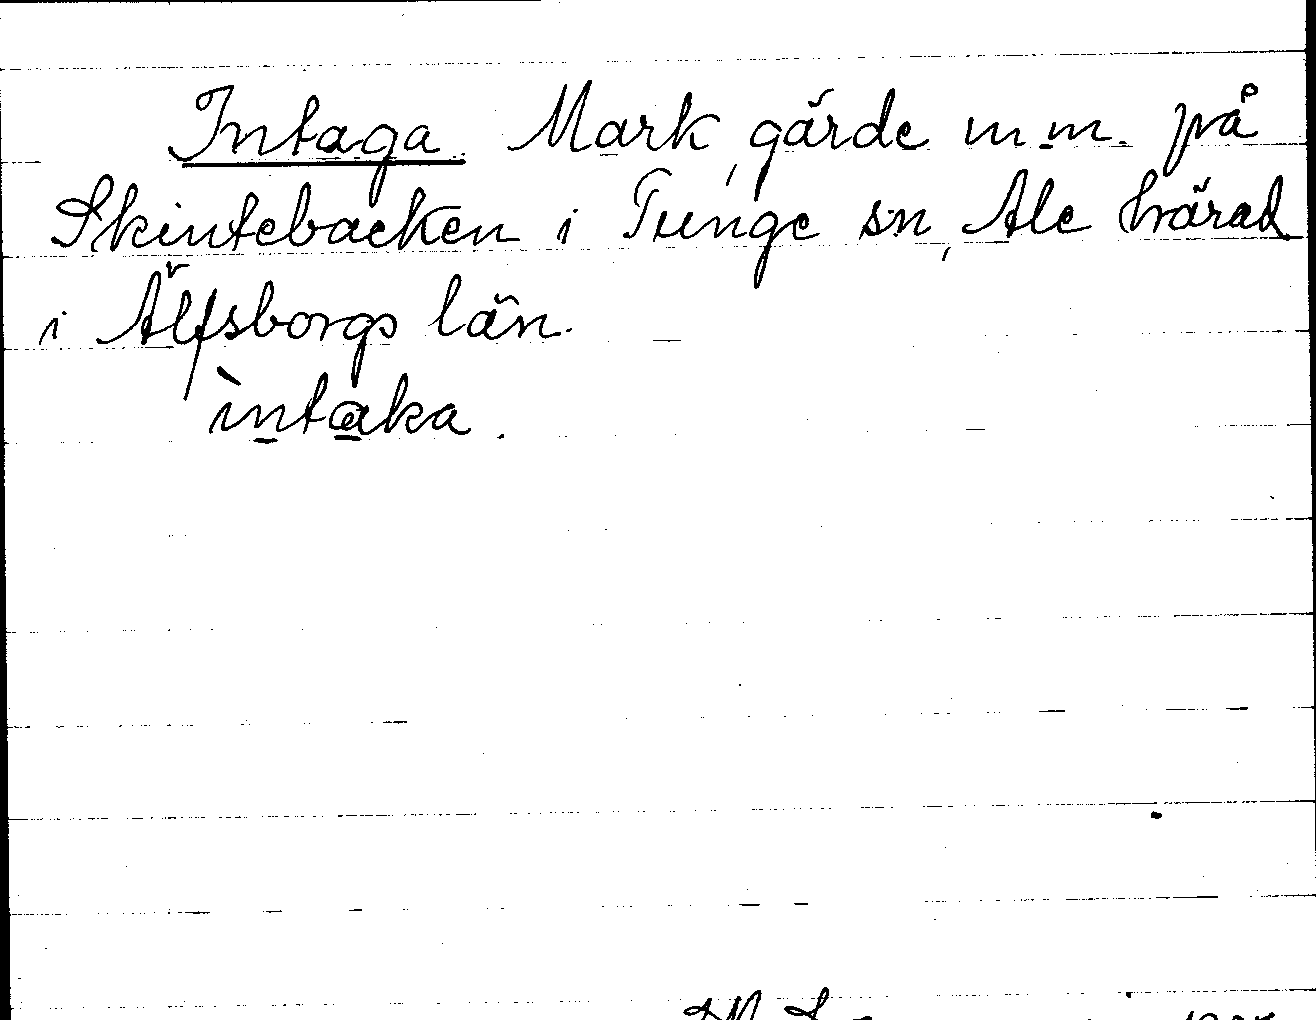 Intaga. Mark, gärde m.m. på
Skintebacken i Tunge sn, Ale härad
i Älfsborgs län.
ìntaka.